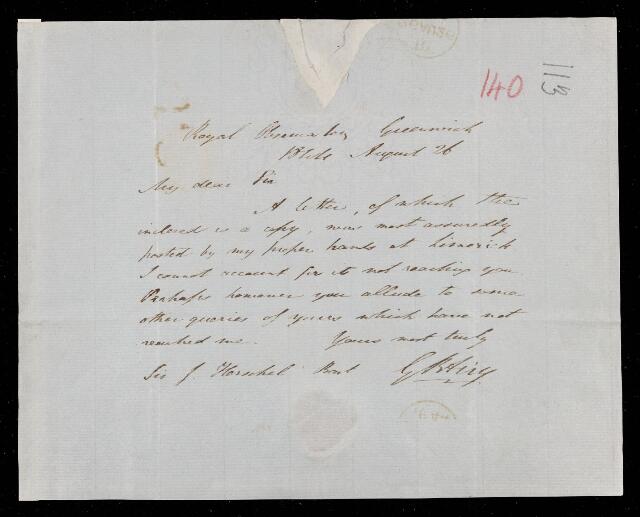 140
113
Royal Observatory Greenwich
1846 August 26
My dear Sir
A letter, of which the
inclosed is a copy, was most assuredly
posted by my proper hands at Limerick
I cannot account for its not reaching you.
Perhaps however you allude to some
other queries of yours which have not
reached me. Yours most truly
Sir J Herschel Bart G B Airy